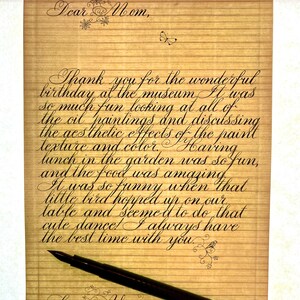 Dear Mom,
Thank you for the wonderful
birthday at the museum. It was
so much fun looking at all of
the oil paintings and discussing
the aesthetic effects of the paint
texture and color. Having
lunch in the garden was so fun,
and the food was amazing.
It was so funny when that
little bird hopped up on our
table and seemed to do that
cute dance! I always have
the best time with you.